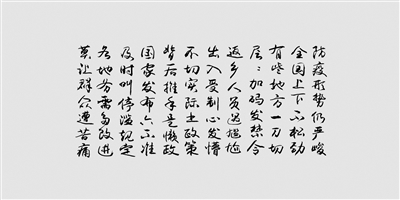 防疫形势仍严峻
全国上下不松劲
有些地方一刀切
层层加码发禁令
返乡人员遇尴尬
出入受制心发懵
不切实际土政策
背后推手是懒政
国家发布六不准
及时叫停滥规定
各地务需多改进
莫让群众遭苦痛